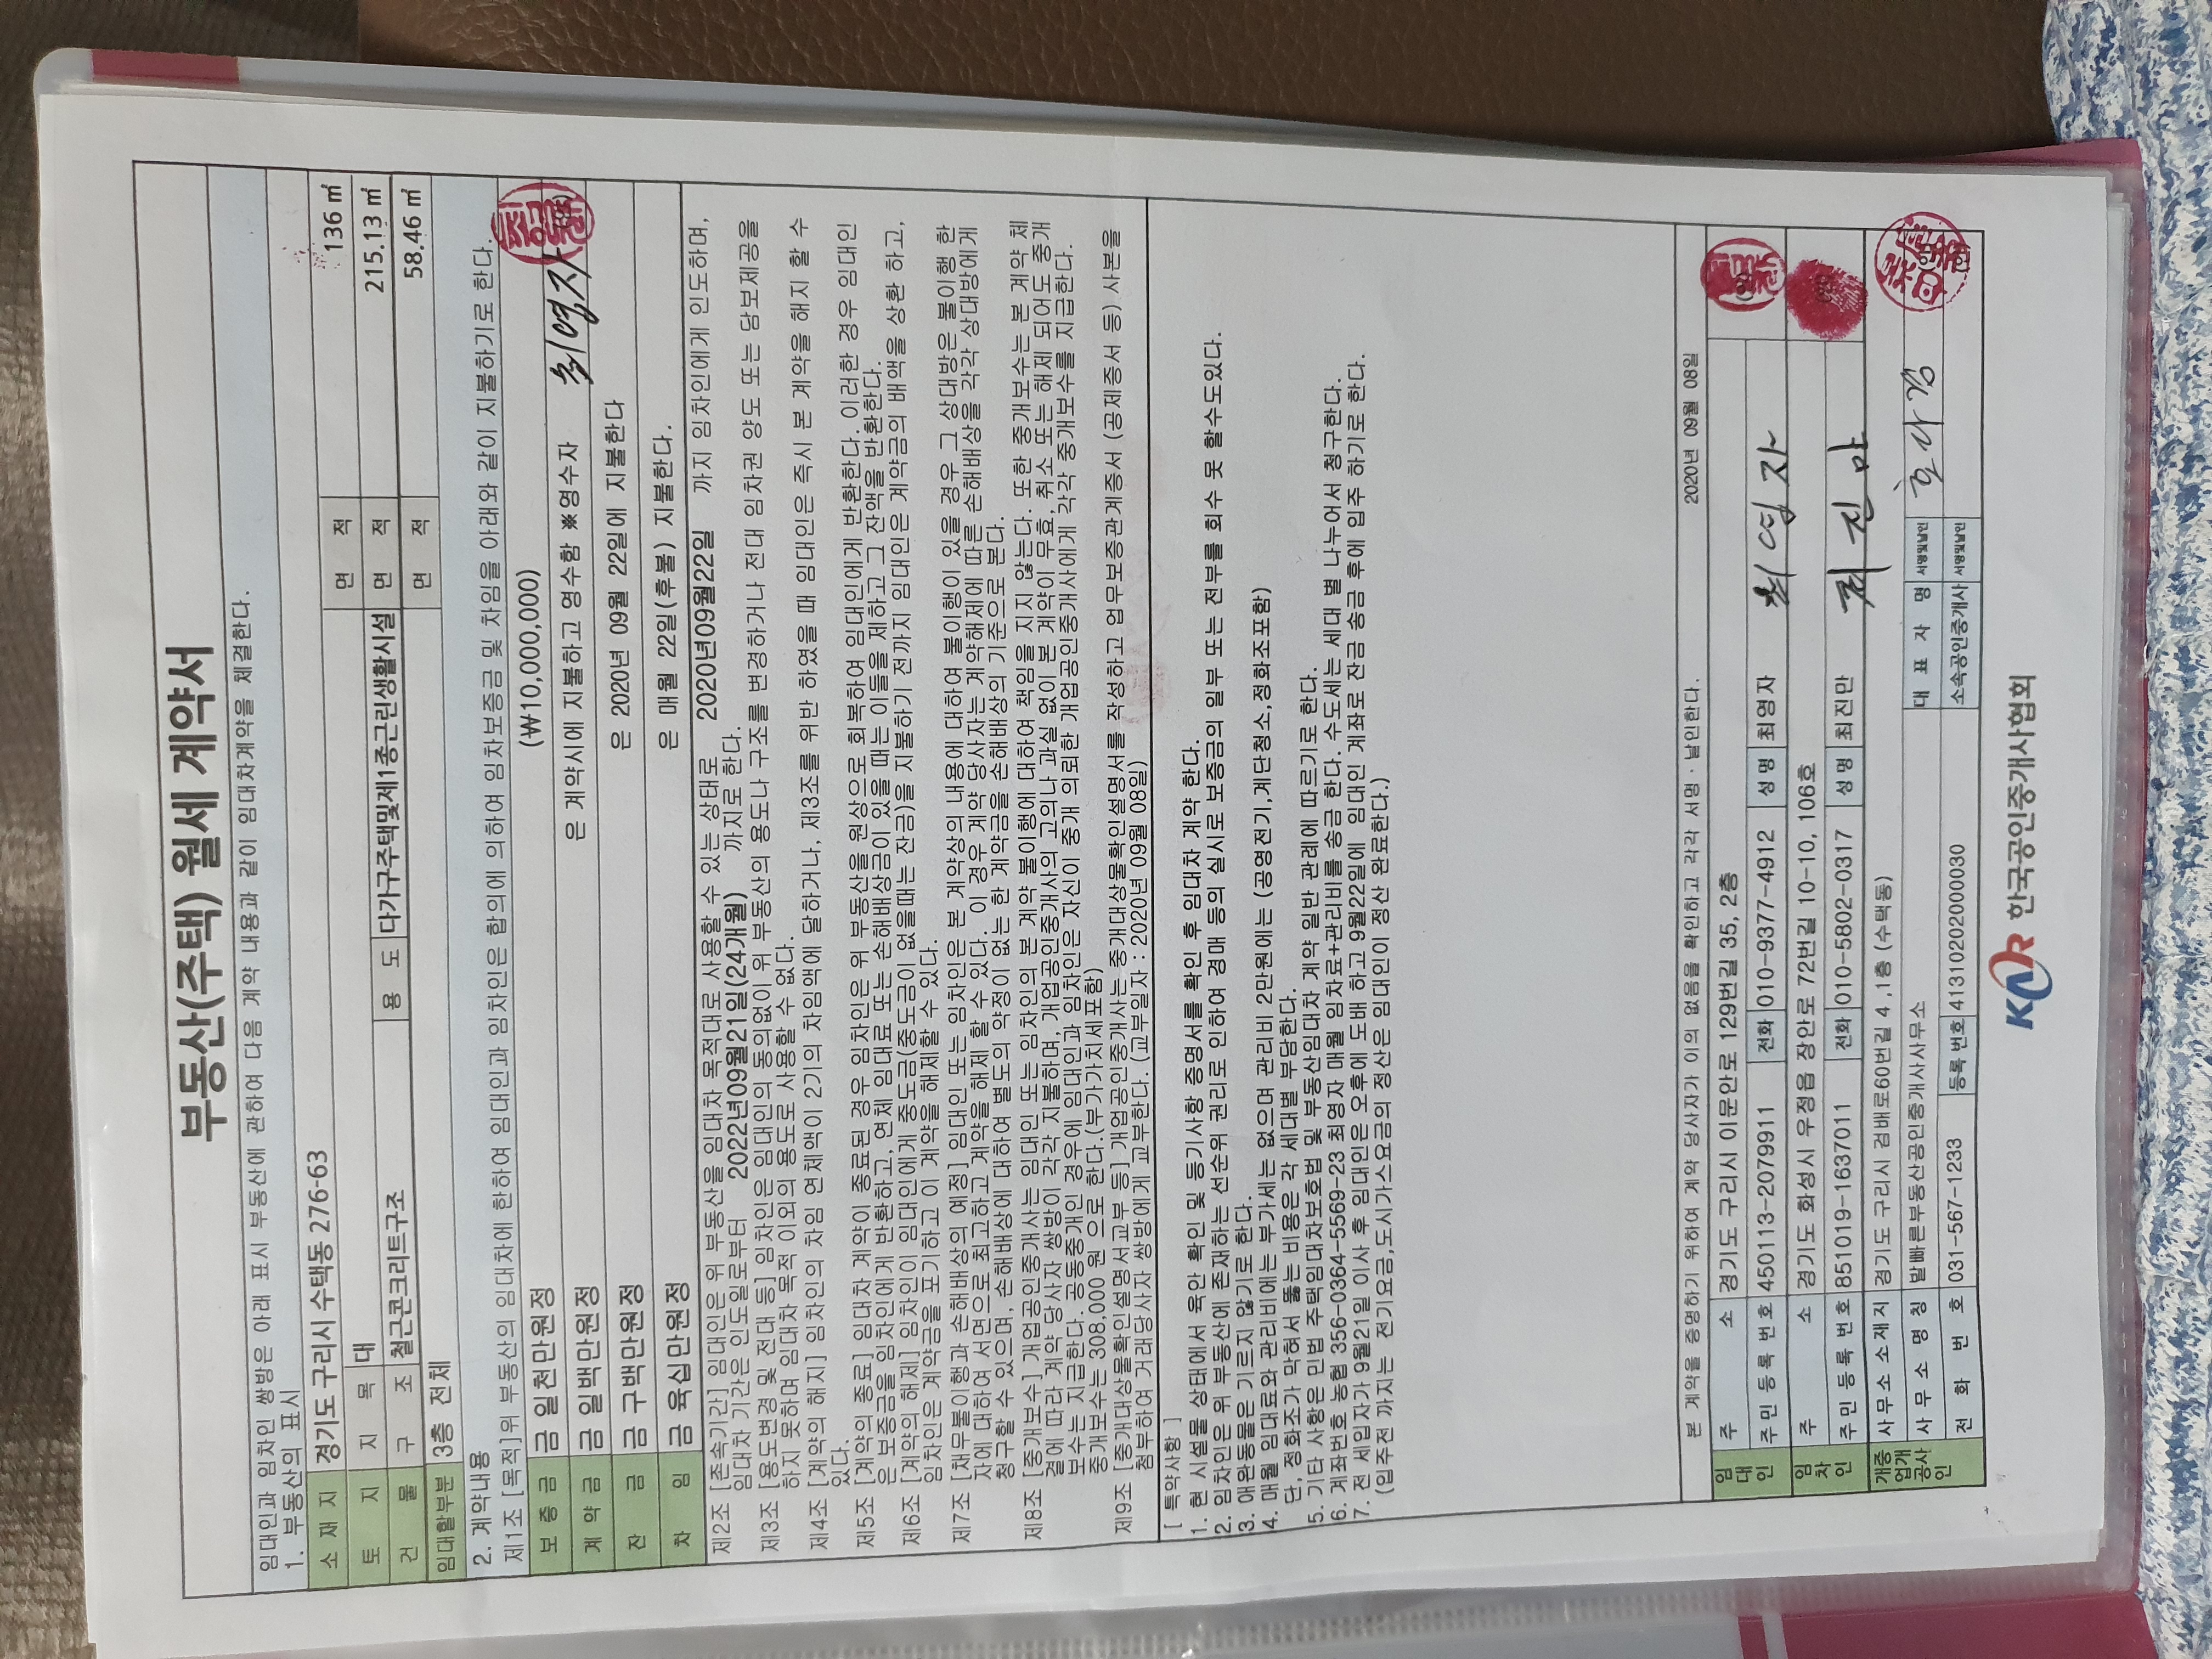 부동산(주택) 월세 계약서
임대인과 임차인 쌍방은 아래 표시 부동산에 관하여 다음 계약 내용과 같이 임대차계약을 체결한다.
1. 부동산의 표시
소 재 지 경기도 구리시 수택동 276-63
토 지 지 목 대 면 적 136 ㎡
건 물 구 조 철근콘크리트구조 용 도 다가구주택및제1종근린생활시설 면 적 215.13 ㎡
임대할부분 3층 전체 면 적 58.46 ㎡
2. 계약내용
제1조 [목적]위 부동산의 임대차에 한하여 임대인과 임차인은 합의에 의하여 임차보증금 및 차임을 아래와 같이 지불하기로 한다.
보 증 금 금 일천만원정 (₩10,000,000)
계 약 금 금 일백만원정 은 계약시에 지불하고 영수함 ※영수자 최영자 (인)
잔 금 금 구백만원정 은 2020년 09월 22일에 지불한다
차 임 금 육십만원정 은 매월 22일(후불) 지불한다.
제2조 [존속기간] 임대인은 위 부동산을 임대차 목적대로 사용할 수 있는 상태로 2020년09월22일 까지 임차인에게 인도하며,
임대차 기간은 인도일로부터 2022년09월21일(24개월) 까지로 한다.
제3조 [용도변경 및 전대 등] 임차인은 임대인의 동의없이 위 부동산의 용도나 구조를 변경하거나 전대 임차권 양도 또는 담보제공을
하지 못하며 임대차 목적 이외의 용도로 사용할 수 없다.
제4조 [계약의 해지] 임차인의 차임 연체액이 2기의 차임액에 달하거나, 제3조를 위반 하였을 때 임대인은 즉시 본 계약을 해지 할 수
있다.
제5조 [계약의 종료] 임대차 계약이 종료된 경우 임차인은 위 부동산을 원상으로 회복하여 임대인에게 반환한다. 이러한 경우 임대인
은 보증금을 임차인에게 반환하고, 연체 임대료 또는 손해배상금이 있을 때는 이들을 제하고 그 잔액을 반환한다.
제6조 [계약의 해제] 임차인이 임대인에게 중도금(중도금이 없을때는 잔금)을 지불하기 전까지 임대인은 계약금의 배액을 상환 하고,
임차인은 계약금을 포기하고 이 계약을 해제할 수 있다.
제7조 [채무불이행과 손해배상의 예정] 임대인 또는 임차인은 본 계약상의 내용에 대하여 불이행이 있을 경우 그 상대방은 불이행 한
자에 대하여 서면으로 최고하고 계약을 해제 할 수 있다. 이 경우 계약 당사자는 계약해제에 따른 손해배상을 각각 상대방에게
청구할 수 있으며, 손해배상에 대하여 별도의 약정이 없는 한 계약금을 손해배상의 기준으로 본다.
제8조 [중개보수] 개업공인중개사는 임대인 또는 임차인의 본 계약 불이행에 대하여 책임을 지지 않는다. 또한 중개보수는 본 계약 체
결에 따라 계약 당사자 쌍방이 각각 지불하며, 개업공인중개사의 고의나 과실 없이 본 계약이 무효, 취소 또는 해제 되어도 중개
보수는 지급한다. 공동중개인 경우에 임대인과 임차인은 자신이 중개 의뢰한 개업공인중개사에게 각각 중개보수를 지급한다.
중개보수는 308,000 원 으로 한다.(부가가치세포함)
제9조 [중개대상물확인설명서교부 등] 개업공인중개사는 중개대상물확인설명서를 작성하고 업무보증관계증서 (공제증서 등) 사본을
첨부하여 거래당사자 쌍방에게 교부한다. (교부일자 : 2020년 09월 08일)
[ 특약사항 ]
1. 현 시설물 상태에서 육안 확인 및 등기사항 증명서를 확인 후 임대차 계약 한다.
2. 임차인은 위 부동산에 존재하는 선순위 권리로 인하여 경매 등의 실시로 보증금의 일부 또는 전부를 회수 못 할수도있다.
3. 애완동물은 기르지 않기로 한다.
4. 매월 임대료와 관리비에는 부가세는 없으며 관리비 2만원에는 (공영전기,계단청소,정화조포함)
단, 정화조가 막혀서 뚫는 비용은 각 세대별 부담한다.
5. 기타 사항은 민법 주택임대차보호법 및 부동산임대차 계약 일반 관례에 따르기로 한다.
6. 계좌번호 농협 356-0364-5569-23 최영자 매월 임차료+관리비를 송금 한다. 수도세는 세대 별 나누어서 청구한다.
7. 전 세입자가 9월21일 이사 후 임대인은 오후에 도배 하고 9월22일에 임대인 계좌로 잔금 송금 후에 입주 하기로 한다.
(입주전 까지는 전기요금,도시가스요금의 정산은 임대인이 정산 완료한다.)
본 계약을 증명하기 위하여 계약 당사자가 이의 없음을 확인하고 각각 서명·날인한다. 2020년 09월 08일
임대인 주 소 경기도 구리시 이문안로 129번길 35, 2층
주민등록번호 450113-2079911 전화 010-9377-4912 성명 최영자 최영자 (인)
임차인 주 소 경기도 화성시 우정읍 장안로 72번길 10-10, 106호
주민등록번호 851019-1637011 전화 010-5802-0317 성명 최진만 최진만
개업공인중개사 사무소 소재지 경기도 구리시 검배로60번길 4 ,1층 (수택동)
사무소 명칭 발빠른부동산공인중개사사무소 대 표 자 명 서명및날인 (인)
전 화 번 호 031-567-1233 등록번호 413102020000030 소속공인중개사 서명및날인 (인)
KAR 한국공인중개사협회